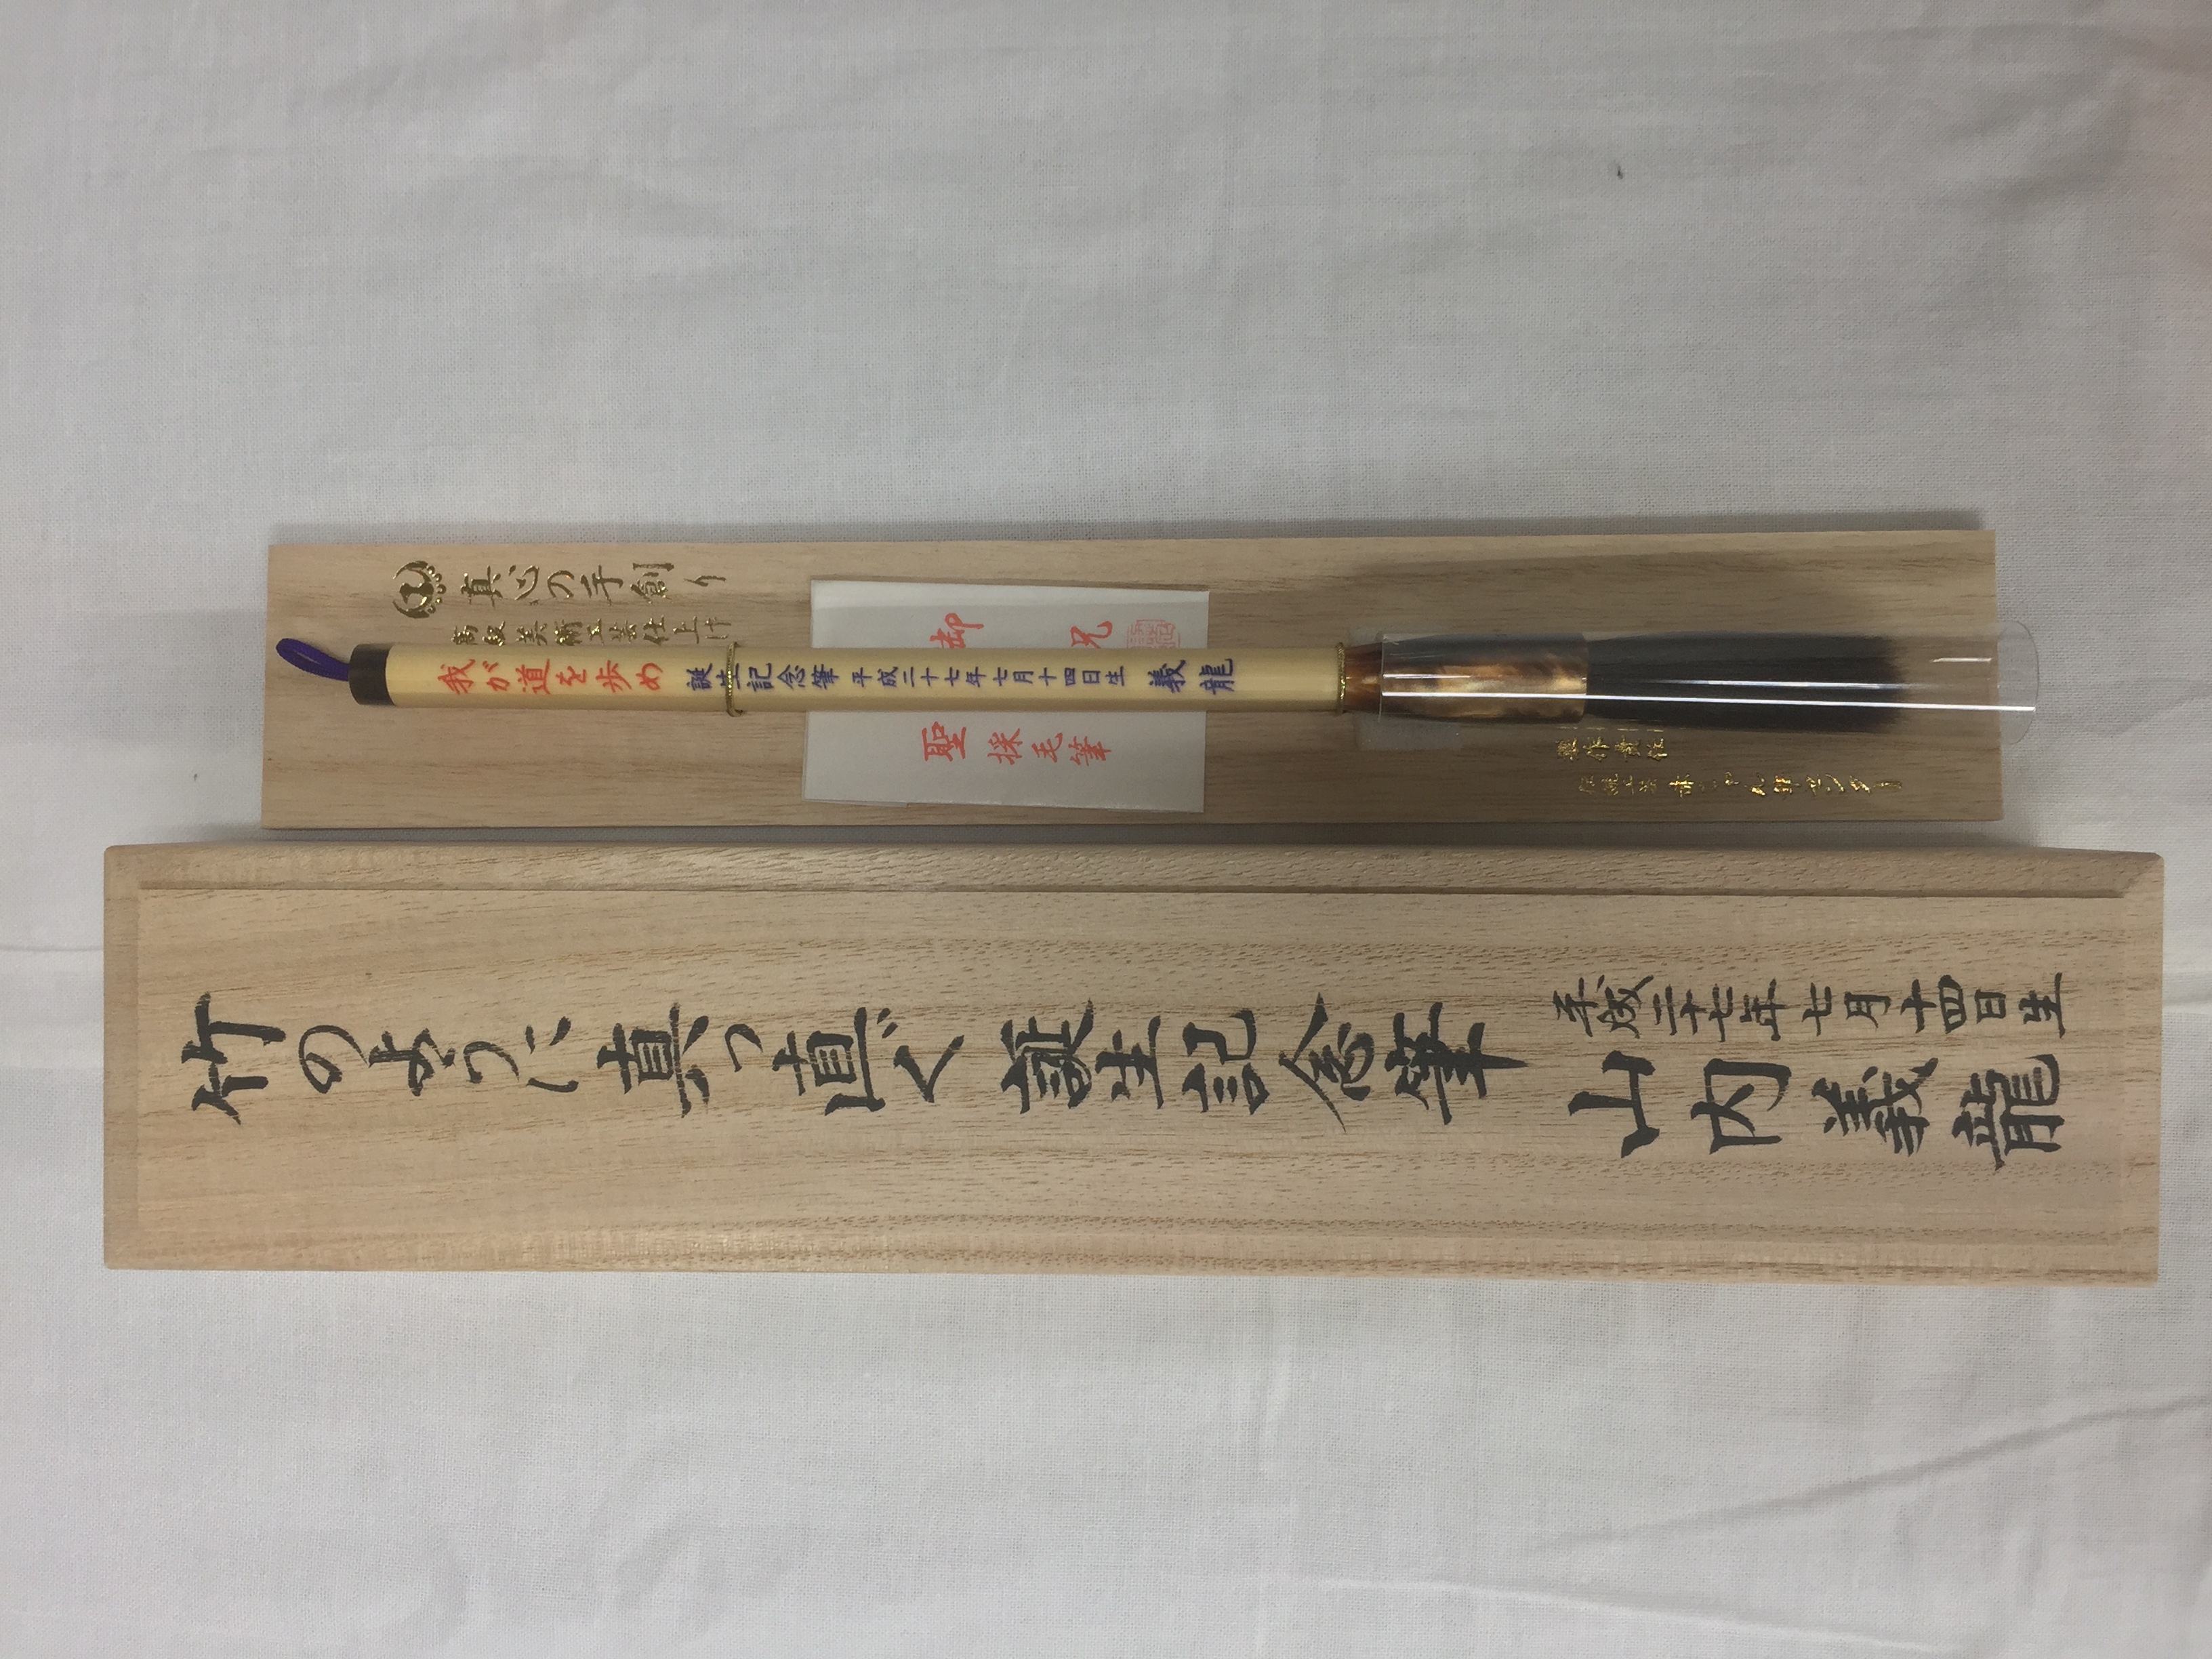 竹のように真っ直ぐ 誕生記念筆
平成二十七年七月十四日生
山内義龍
真心の手創り
高級美術工芸仕上げ
我が道を歩め 誕生記念筆 平成二十七年七月十四日生 義龍
御祝
聖採毛筆
製作責任
伝統工芸 赤ちゃん筆センター